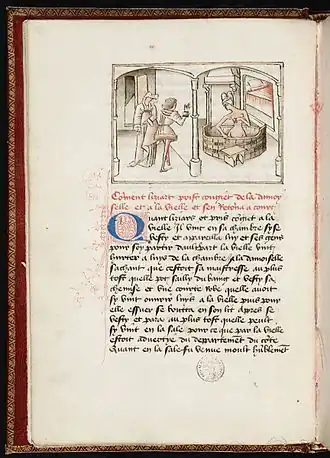 Coment liziart prist congiet de la damoi
selle et a la vielle et sen retorna a
Quant liziars ot pris cogiet a la
vielle Il vint en sa chambre sy se
vesty et apparella luy et ses gens
pour soy partir daultrepart la vielle vint
hurter a luys de la chambre a la damoiselle
sachant que cestoit sa maistresse au plus
tost quelle pot sailly du baing et vesty sa
chemise et une courte robe quelle avoit
sy vint ouvrir luys a la vielle puis pour
elle essuer se bouta en son lit apres se
vesty et para au plus tost quelle peult
sy vint en la sale pour ce que par la vielle
estoit advertie du departement du côte
Quant en la sale fu venue moult hūblemēt